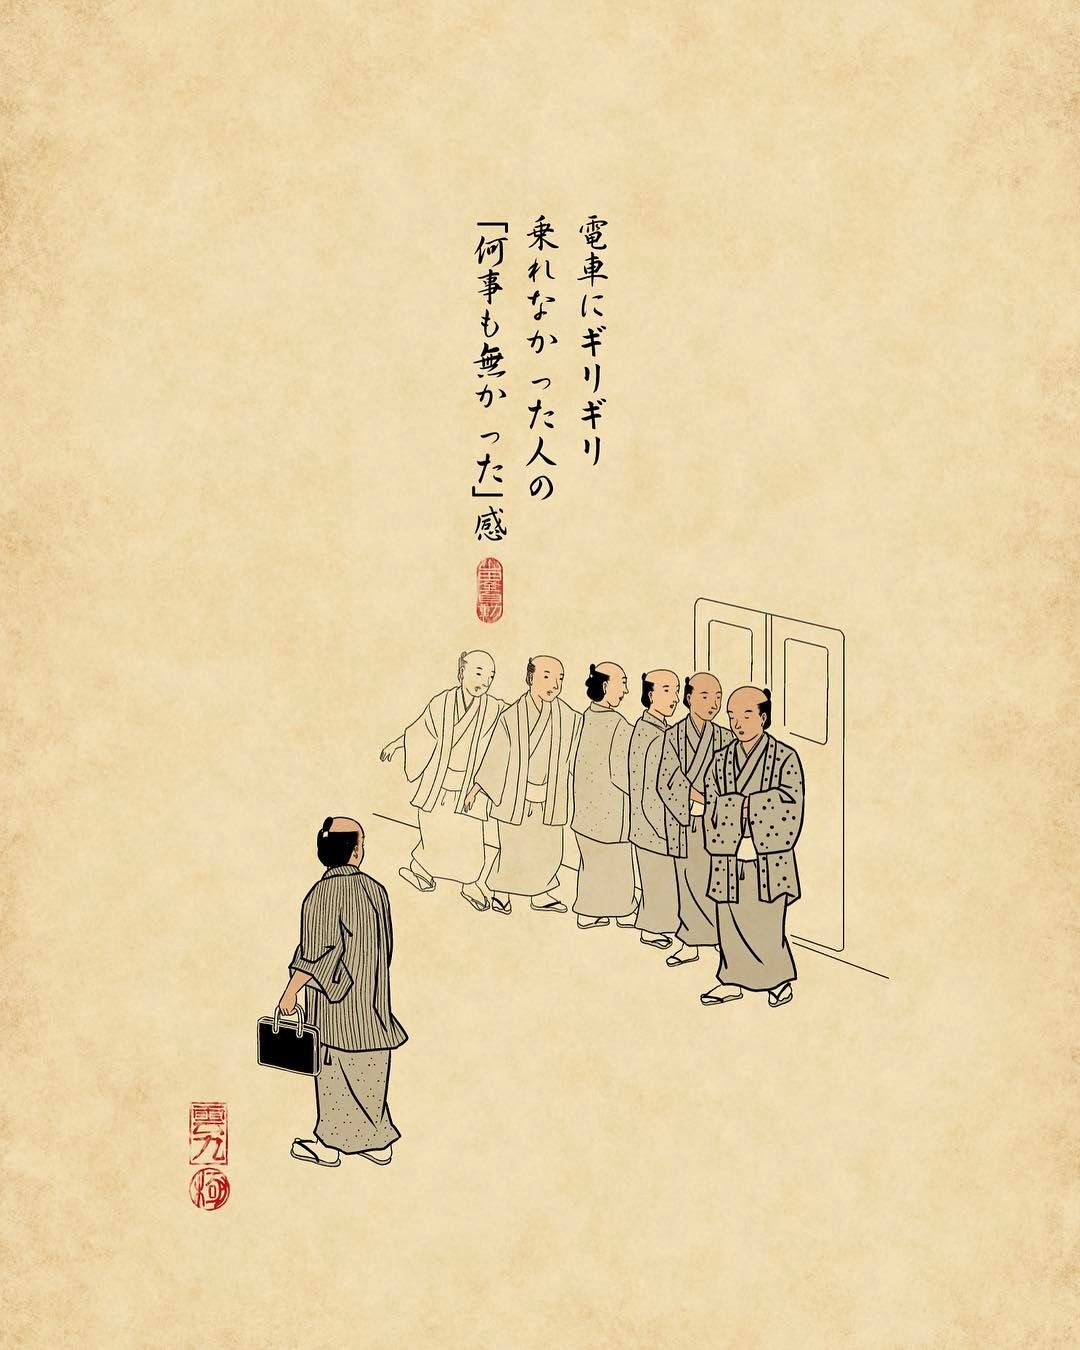 電車にギリギリ
乗れなかった人の
「何事も無かった」感